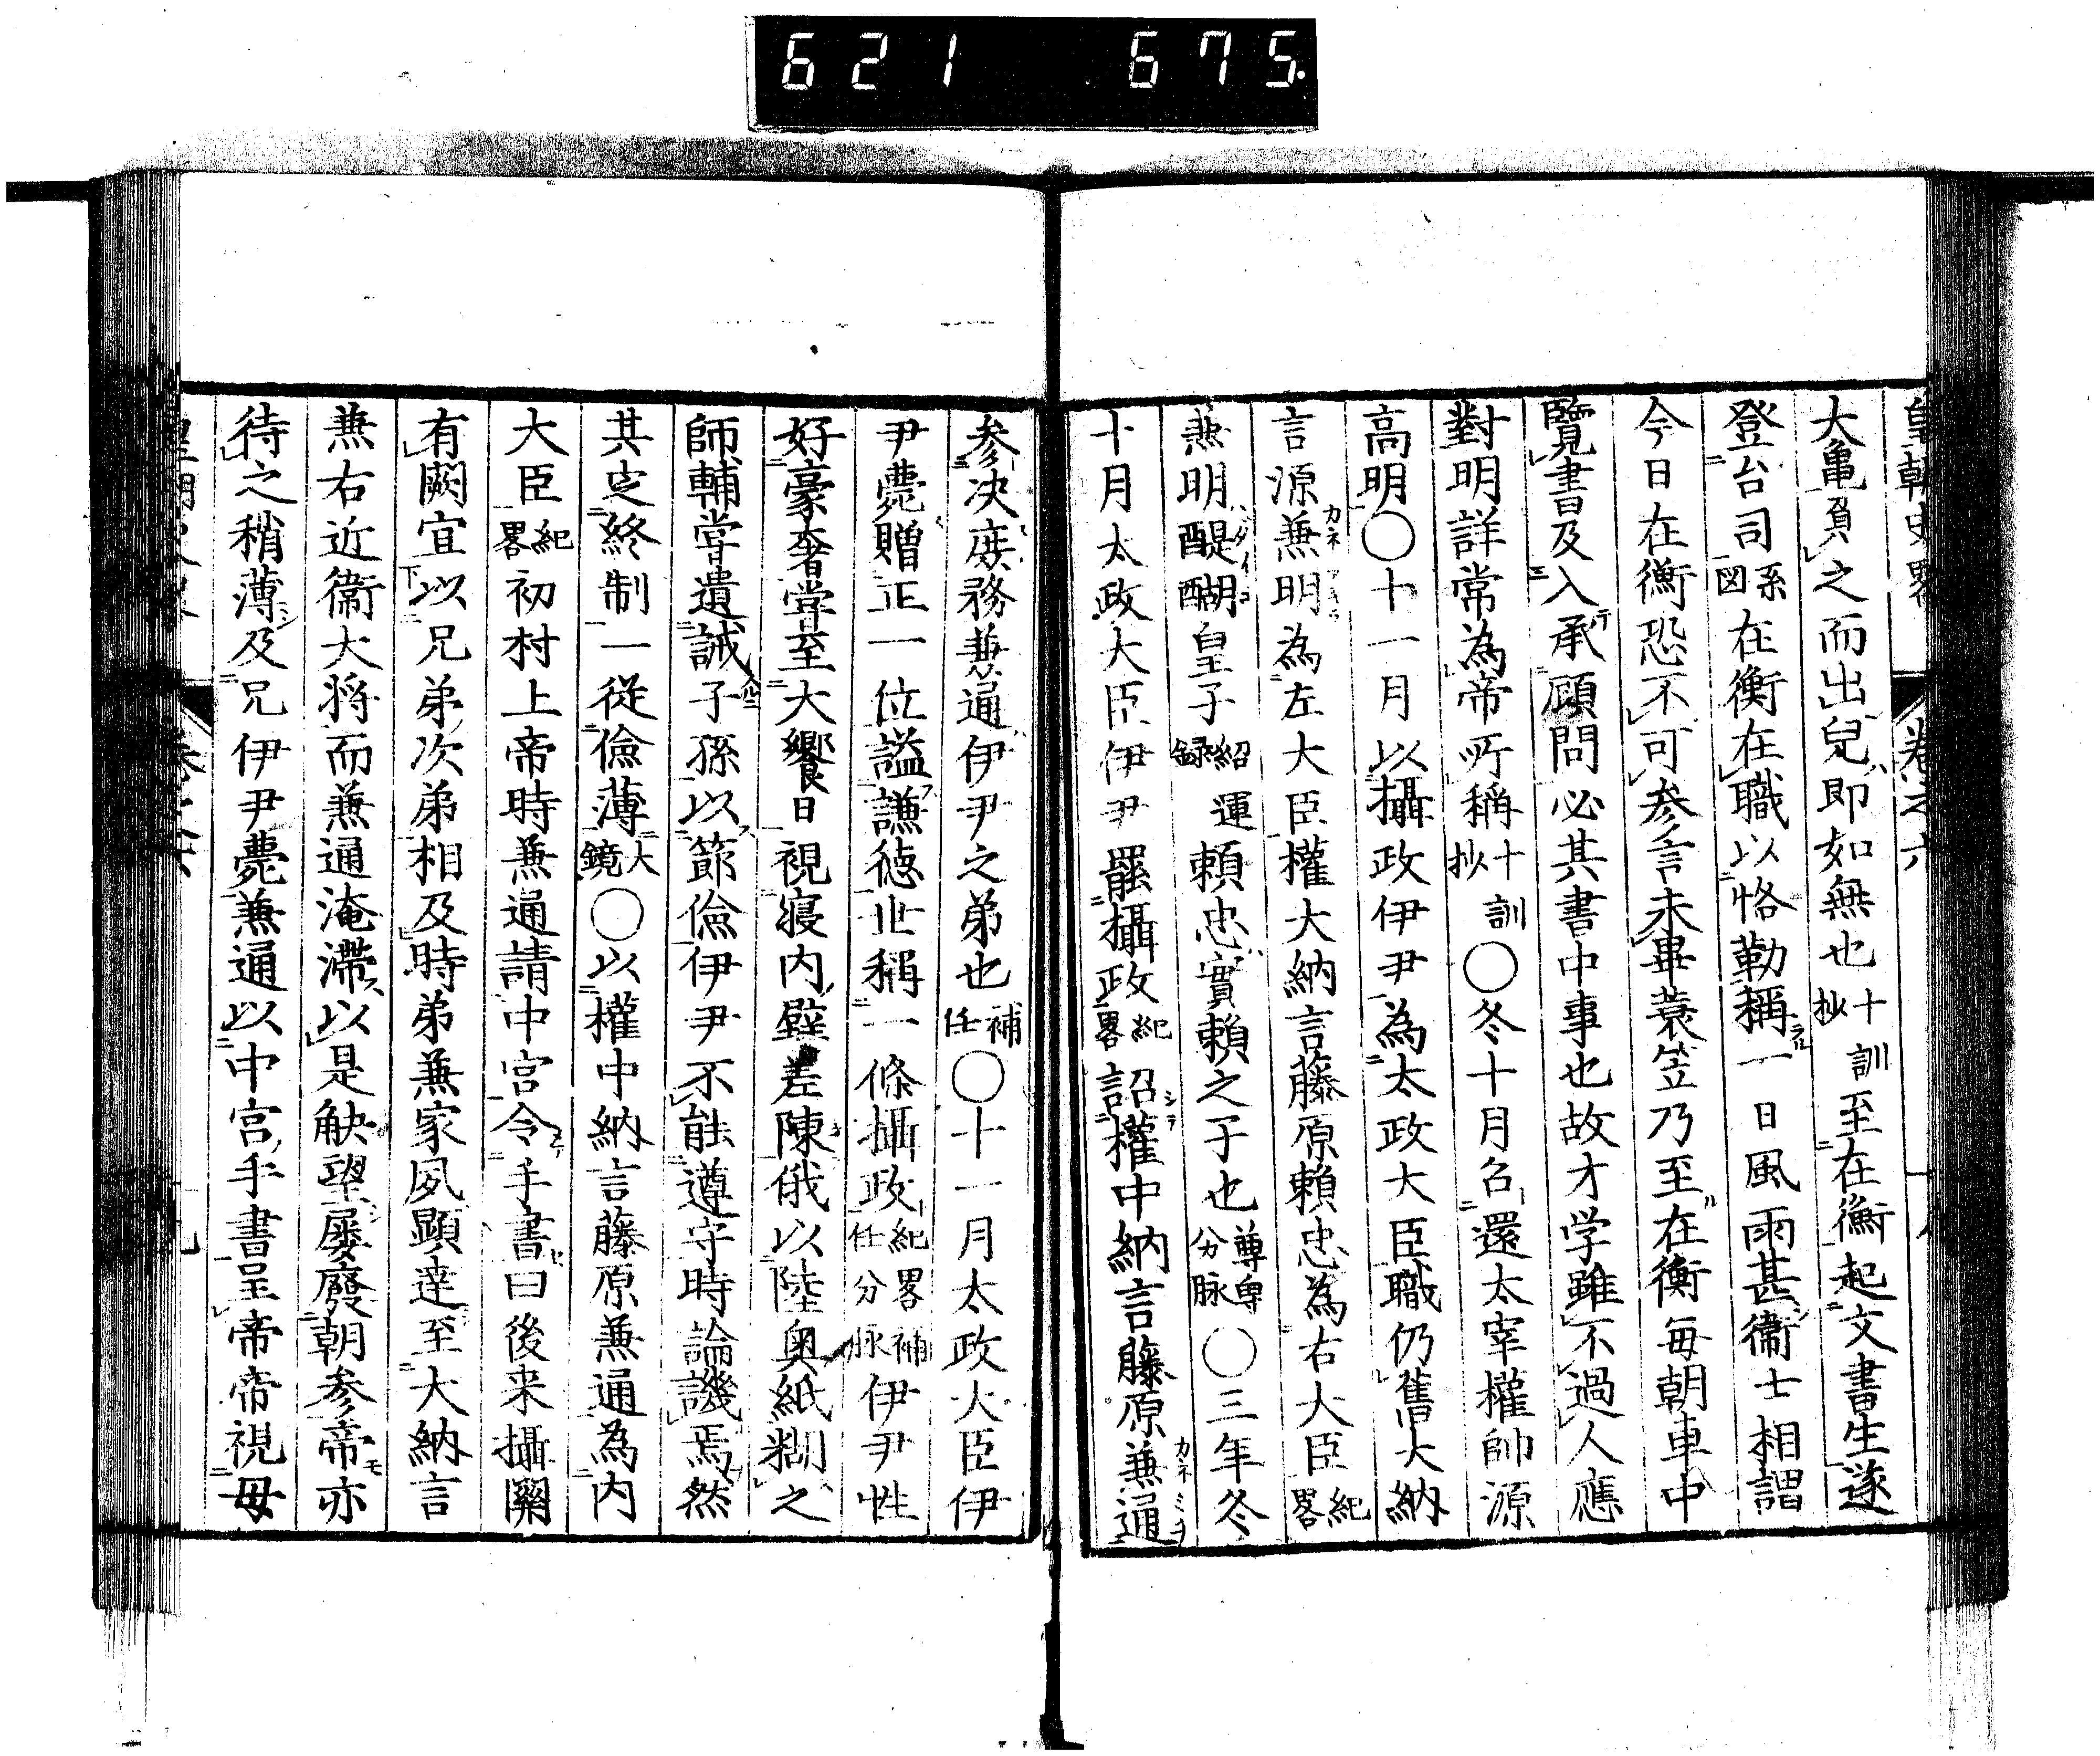 621 675.
皇朝史畧 卷之六
大亀負之而出兒即如無也十訓抄至在衡起文書生遂
登台司系図在衡在職以恪勤稱一日風雨甚衞士相謂
今日在衡恐不可参言未畢蓑笠乃至在衡每朝車中
覽書及入承顧問必其書中事也故才学雖不過人應
對明詳常為帝所稱十訓抄○冬十月召還太宰權帥源
高明○十一月以攝政伊尹為太政大臣職仍舊大納
言源兼明為左大臣權大納言藤原頼忠為右大臣紀畧
兼明醍醐皇子紹運録頼忠實頼之子也尊卑分脉○三年冬
十月太政大臣伊尹罷攝政紀畧詔權中納言藤原兼通
参決庶務兼通伊尹之弟也補任○十一月太政大臣伊
尹薨贈正一位謚謙徳世稱一條攝政紀畧補任分脉伊尹性
好豪奢嘗至大饗日視寝内壁差陳俄以陸奥紙糊之
師輔嘗遺誡子孫以節儉伊尹不能遵守時論譏焉然
其㝎終制一從儉薄大鏡○以權中納言藤原兼通為内
大臣紀畧初村上帝時兼通請中宮令手書曰後来攝關
有闕宜以兄弟次弟相及時弟兼家夙顯達至大納言
兼右近衞大将而兼通淹滯以是觖望屡廢朝参帝亦
待之稍薄及兄伊尹薨兼通以中宮手書呈帝帝視母